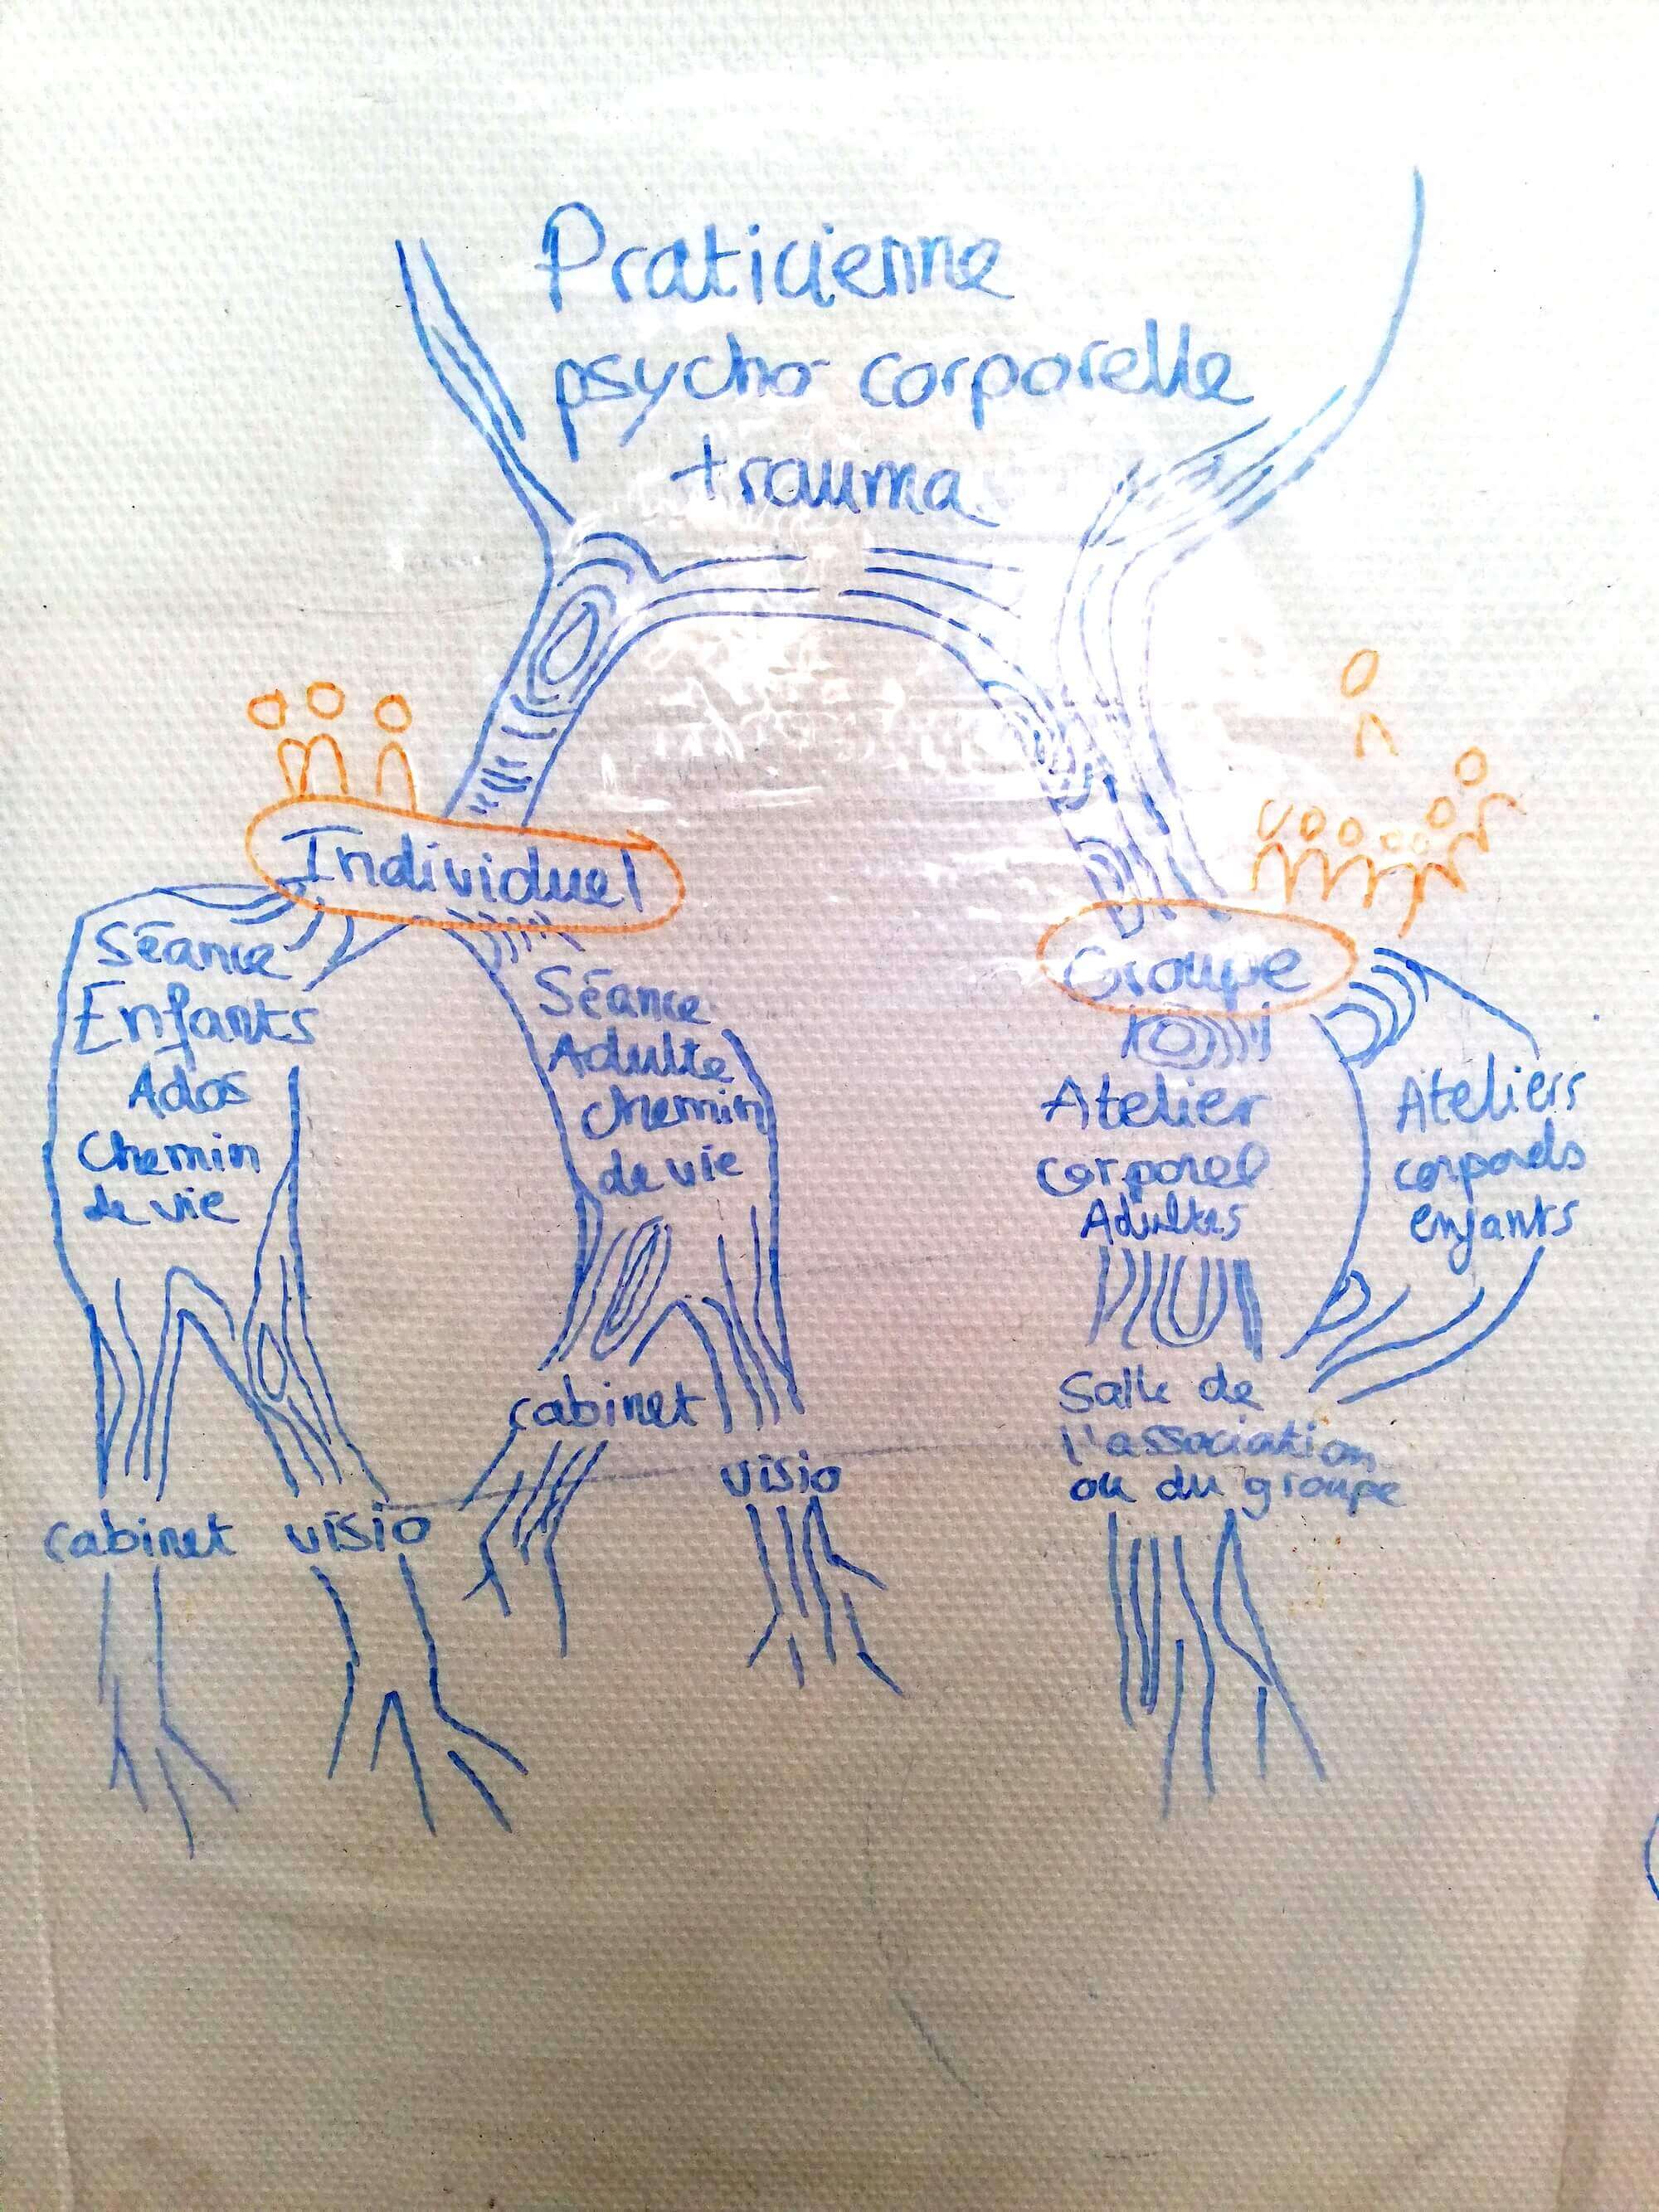 Praticienne
psycho-corporelle
trauma
Individuel
Séance
Enfants
Ados
Chemin
de vie
cabinet
visio
Séance
Adulte
chemin
de vie
cabinet
visio
Groupe
Atelier
corporel
Adultes
Ateliers
corporels
enfants
Salle de
l'association
ou du groupe